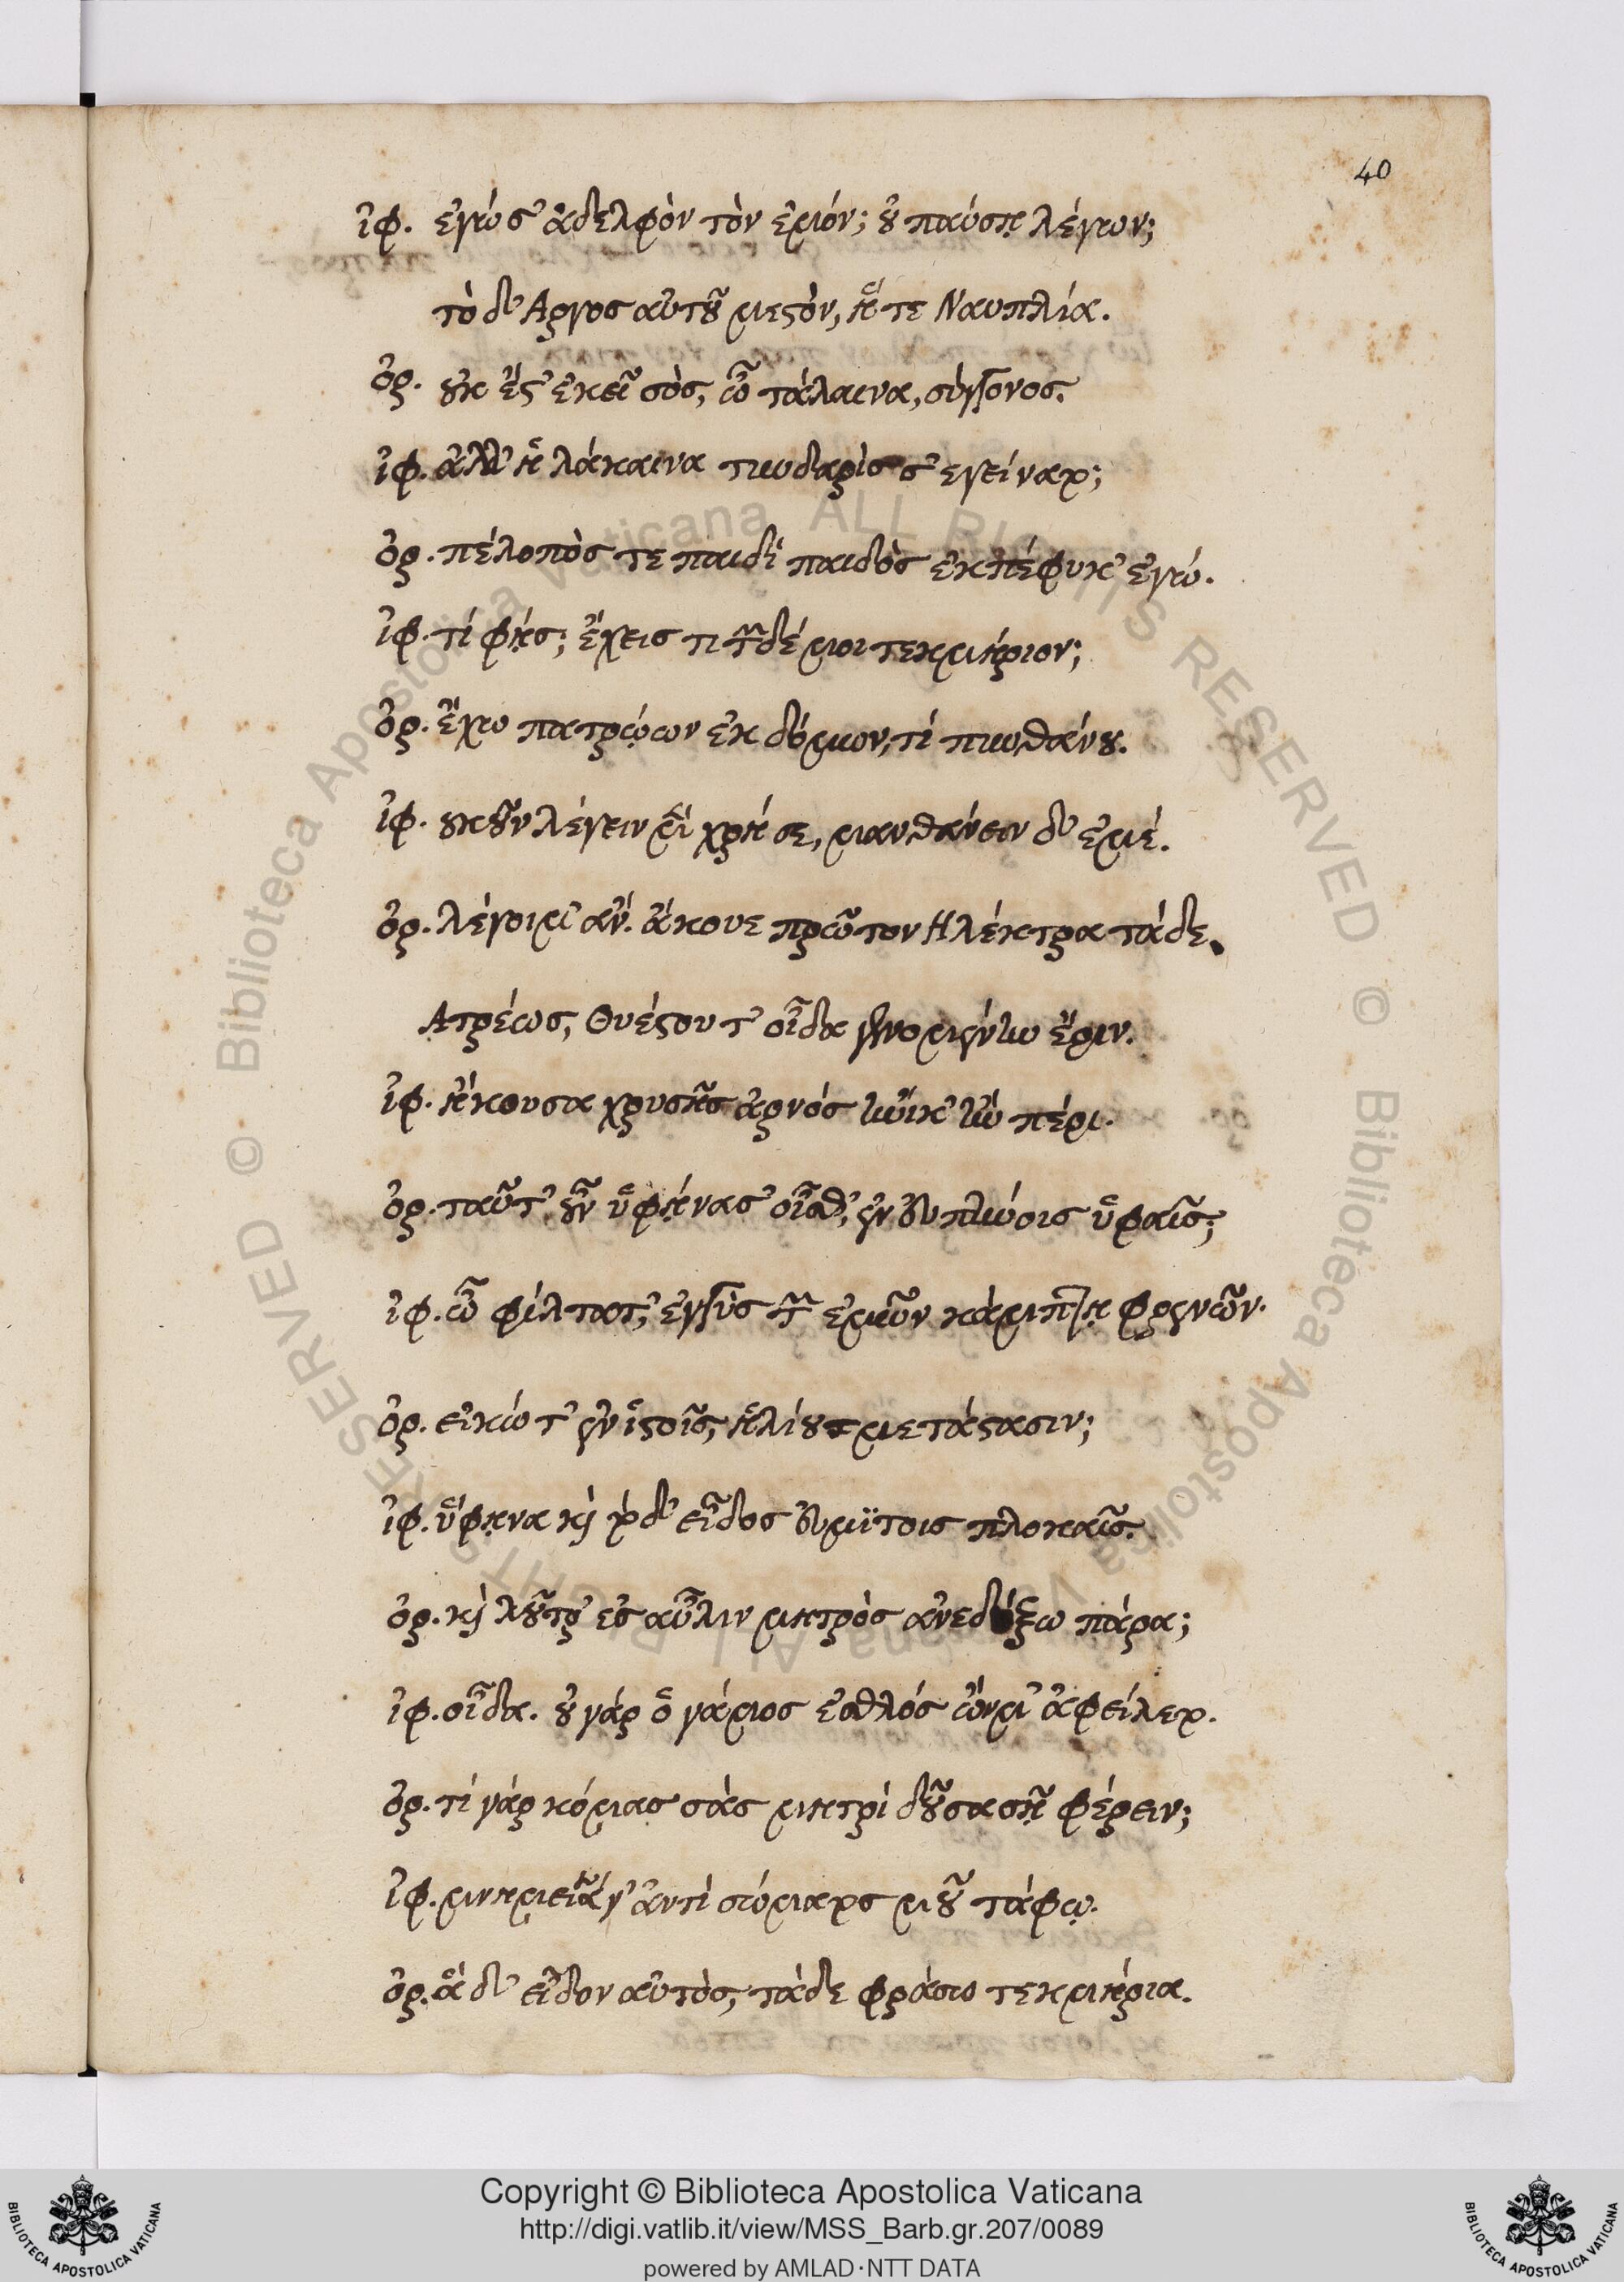 40
ἰφ. ἐγώ σ' ἀδελφὸν τὸν ἐμόν; οὐ παύσῃ λέγων;
τὸ δ' Αργος αὐτοῦ μεστὸν, ἥ τε Ναυπλία.
ὀρ. οὐκ ἔστ' ἐκεῖ σὸς, ὦ τάλαινα, σύγγονος.
ἰφ. ἀλλ' ἡ λάκαινα τυνδαρὶς σ' ἐγείνατο;
ὀρ. πέλοπός τε παιδὶ παιδὸς ἐκπέφυκ' ἐγώ.
ἰφ. τί φῄς; ἔχεις τι τῶνδέ μοι τεκμήριον;
ὀρ. ἔχω πατρῴων ἐκ δόμων, τί πυνθάνου.
ἰφ. οὐκοῦν λέγειν μὲν χρή σε, μανθάνειν δ' ἐμέ.
ὀρ. λέγοιμ' ἄν. ἄκουε πρῶτον Ηλέκτρα τάδε.
Ατρέως, Θυέστου τ' οἶδα γενομένην ἔριν.
ἰφ. ἤκουσα χρυσῆς ἀρνός ἡνίκ' ἦν πέρι.
ὀρ. ταῦτ' οὖν ὑφήνασ' οἶσθ', ἐν εὐπήνοις ὑφαῖς;
ἰφ. ὦ φίλτατ', ἐγγὺς τῶν ἐμῶν κάμπτῃ φρενῶν.
ὀρ. εἰκώ τ' ἐν ἱστοῖς, ἡλίου μετάστασιν;
ἰφ. ὕφηνα καὶ τόδ' εἶδος εὐμίτοις πλοκαῖς.
ὀρ. καὶ λοῦτρ' ἐς αὖλιν μητρὸς ἀνεδέξω πάρα;
ἰφ. οἶδα. οὐ γάρ ὁ γάμος ἐσθλός ὤν μ' ἀφείλετο.
ὀρ. τί γάρ κόμας σὰς μητρί δοῦσα σῇ φέρειν;
ἰφ. μνημεῖά γ' ἀντὶ σώματος μοῦ τάφῳ.
ὀρ. ἃ δ' εἶδον αὐτὸς, τάδε φράσω τεκμήρια.
Copyright © Biblioteca Apostolica Vaticana
http://digi.vatlib.it/view/MSS_Barb.gr.207/0089
powered by AMLAD·NTT DATA